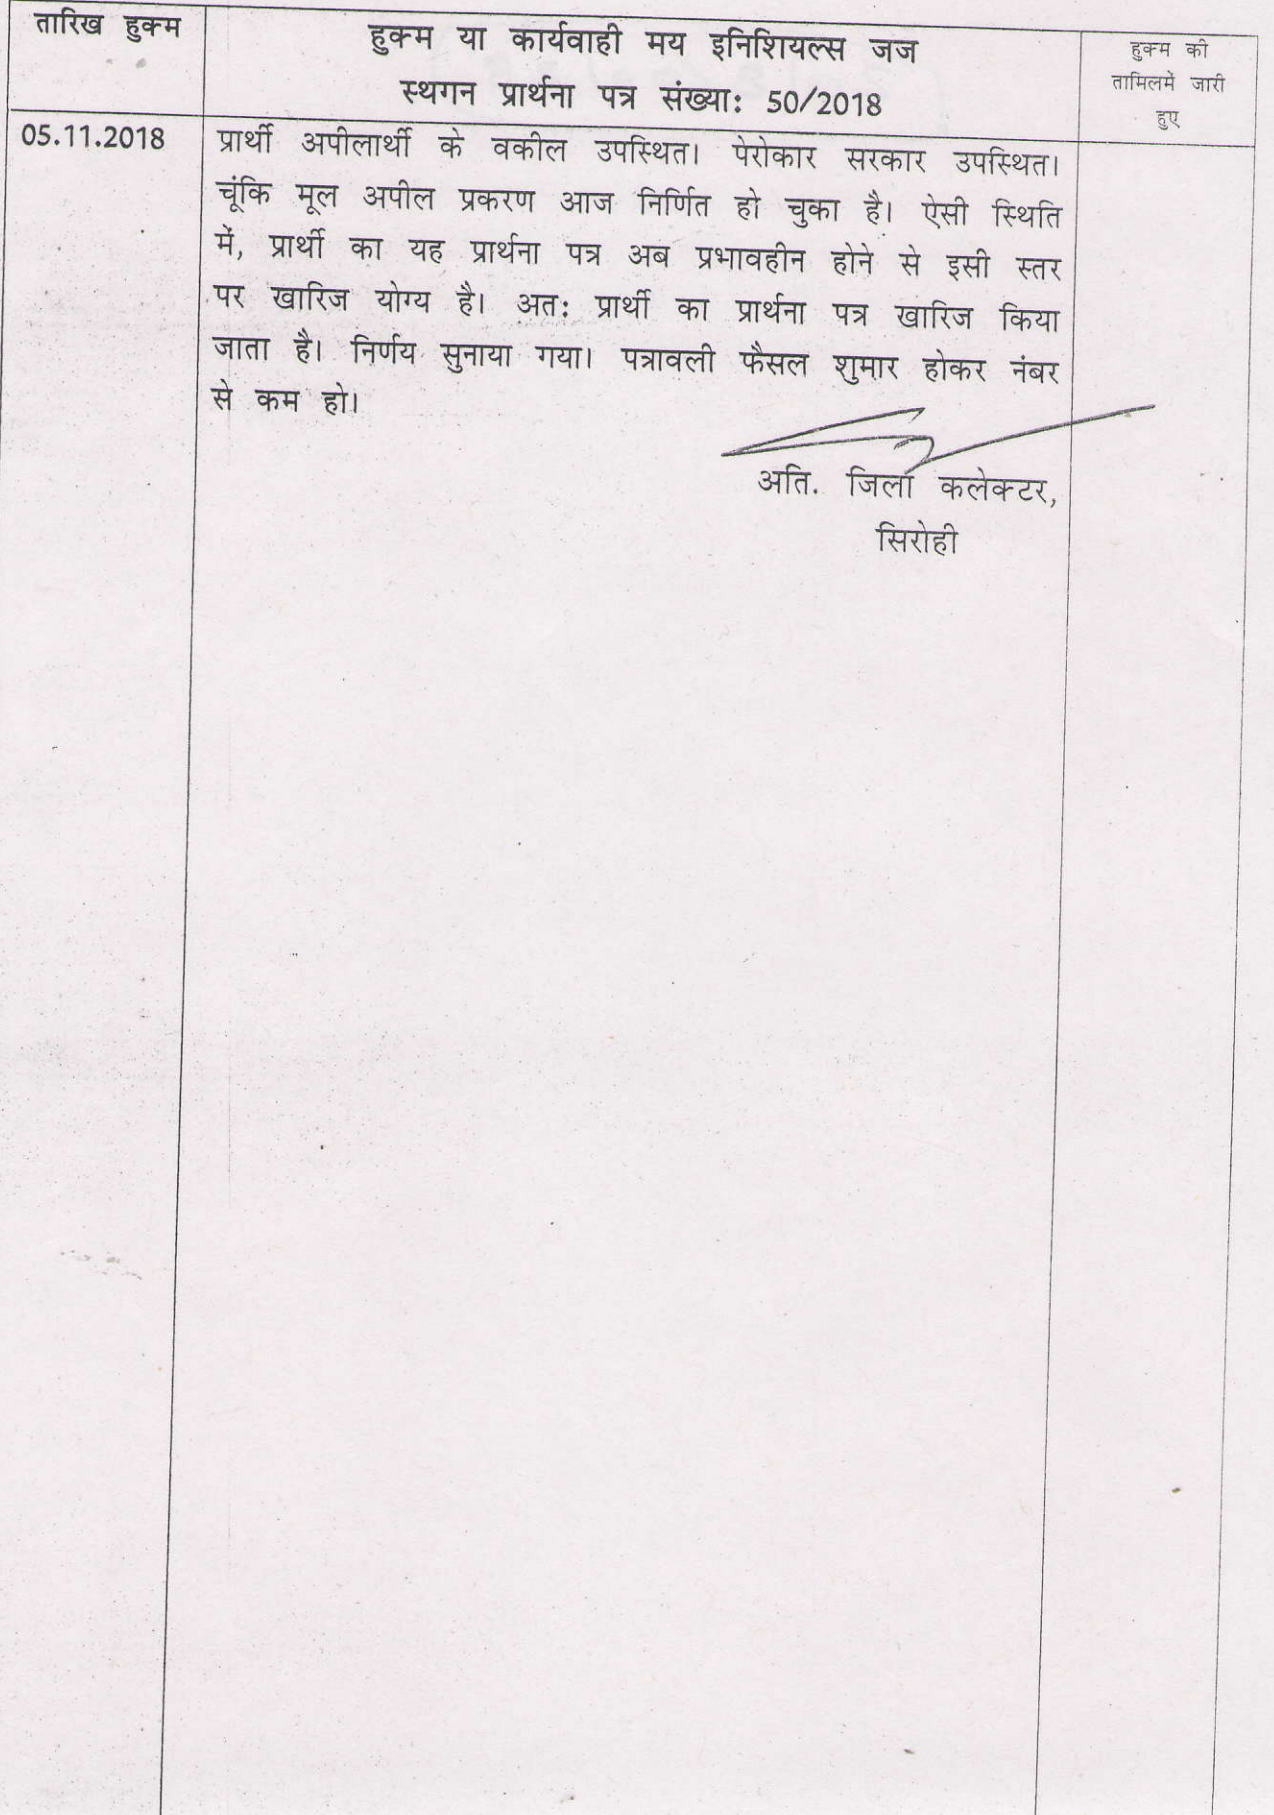 तारिख हुक्म
हुक्म या कार्यवाही मय इनिशियल्स जज
स्थगन प्रार्थना पत्र संख्या: 50/2018
हुक्म की
तामिलमें जारी
हुए
05.11.2018
प्रार्थी अपीलार्थी के वकील उपस्थित। पेरोकार सरकार उपस्थित।
चूंकि मूल अपील प्रकरण आज निर्णित हो चुका है। ऐसी स्थिति
में, प्रार्थी का यह प्रार्थना पत्र अब प्रभावहीन होने से इसी स्तर
पर खारिज योग्य है। अत: प्रार्थी का प्रार्थना पत्र खारिज किया
जाता है। निर्णय सुनाया गया। पत्रावली फैसल शुमार होकर नंबर
से कम हो।
अति. जिला कलेक्टर,
सिरोही